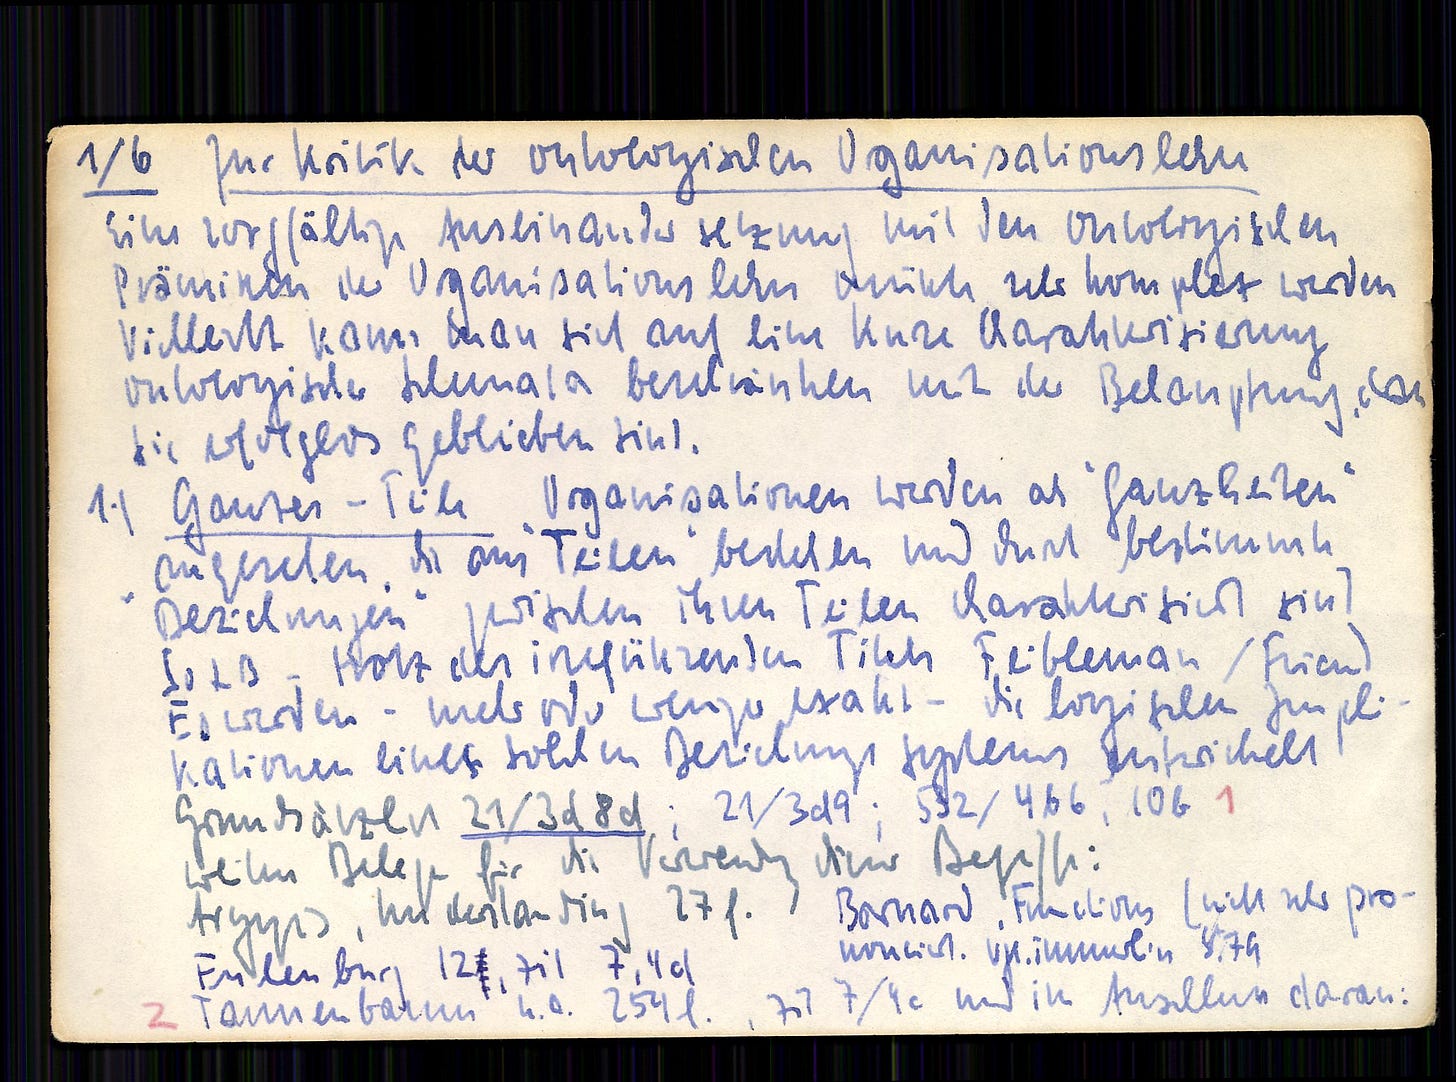 1/6 Zur Kritik der ontologischen Organisationslehre
Eine sorgfältige Auseinandersetzung mit den ontologischen
Prämissen der Organisationslehre müßte sehr komplex werden
Vielleicht kann man sich auf eine kurze Charakterisierung
ontologischer Schemata beschränken mit der Behauptung, dass
sie erfolglos geblieben sind.
1.) Ganzes - Teile Organisationen werden als "Ganzheiten"
angesehen, die aus "Teilen" bestehen und durch bestimmte
"Beziehungen" zwischen ihren Teilen charakterisiert sind
So z B - trotz des irreführenden Titels Feibleman / Friend
Es werden - mehr oder weniger exakt - die logischen Impli-
kationen eines solchen Beziehungssystems entwickelt
Grundsätzlich 21/3d8d ; 21/3d9 ; 532/4b6, 10b 1
weitere Belege für die Verwendung dieser Begriffe:
Argyris, Understanding 27f.
Barnard, Functions (nicht sehr pro-
nonciert. Vgl. immerhin S. 79
Eulenburg 12, zit 7,4d
2 Tannenbaum u.a. 254f., zit 7/4c und im Anschluss daran: